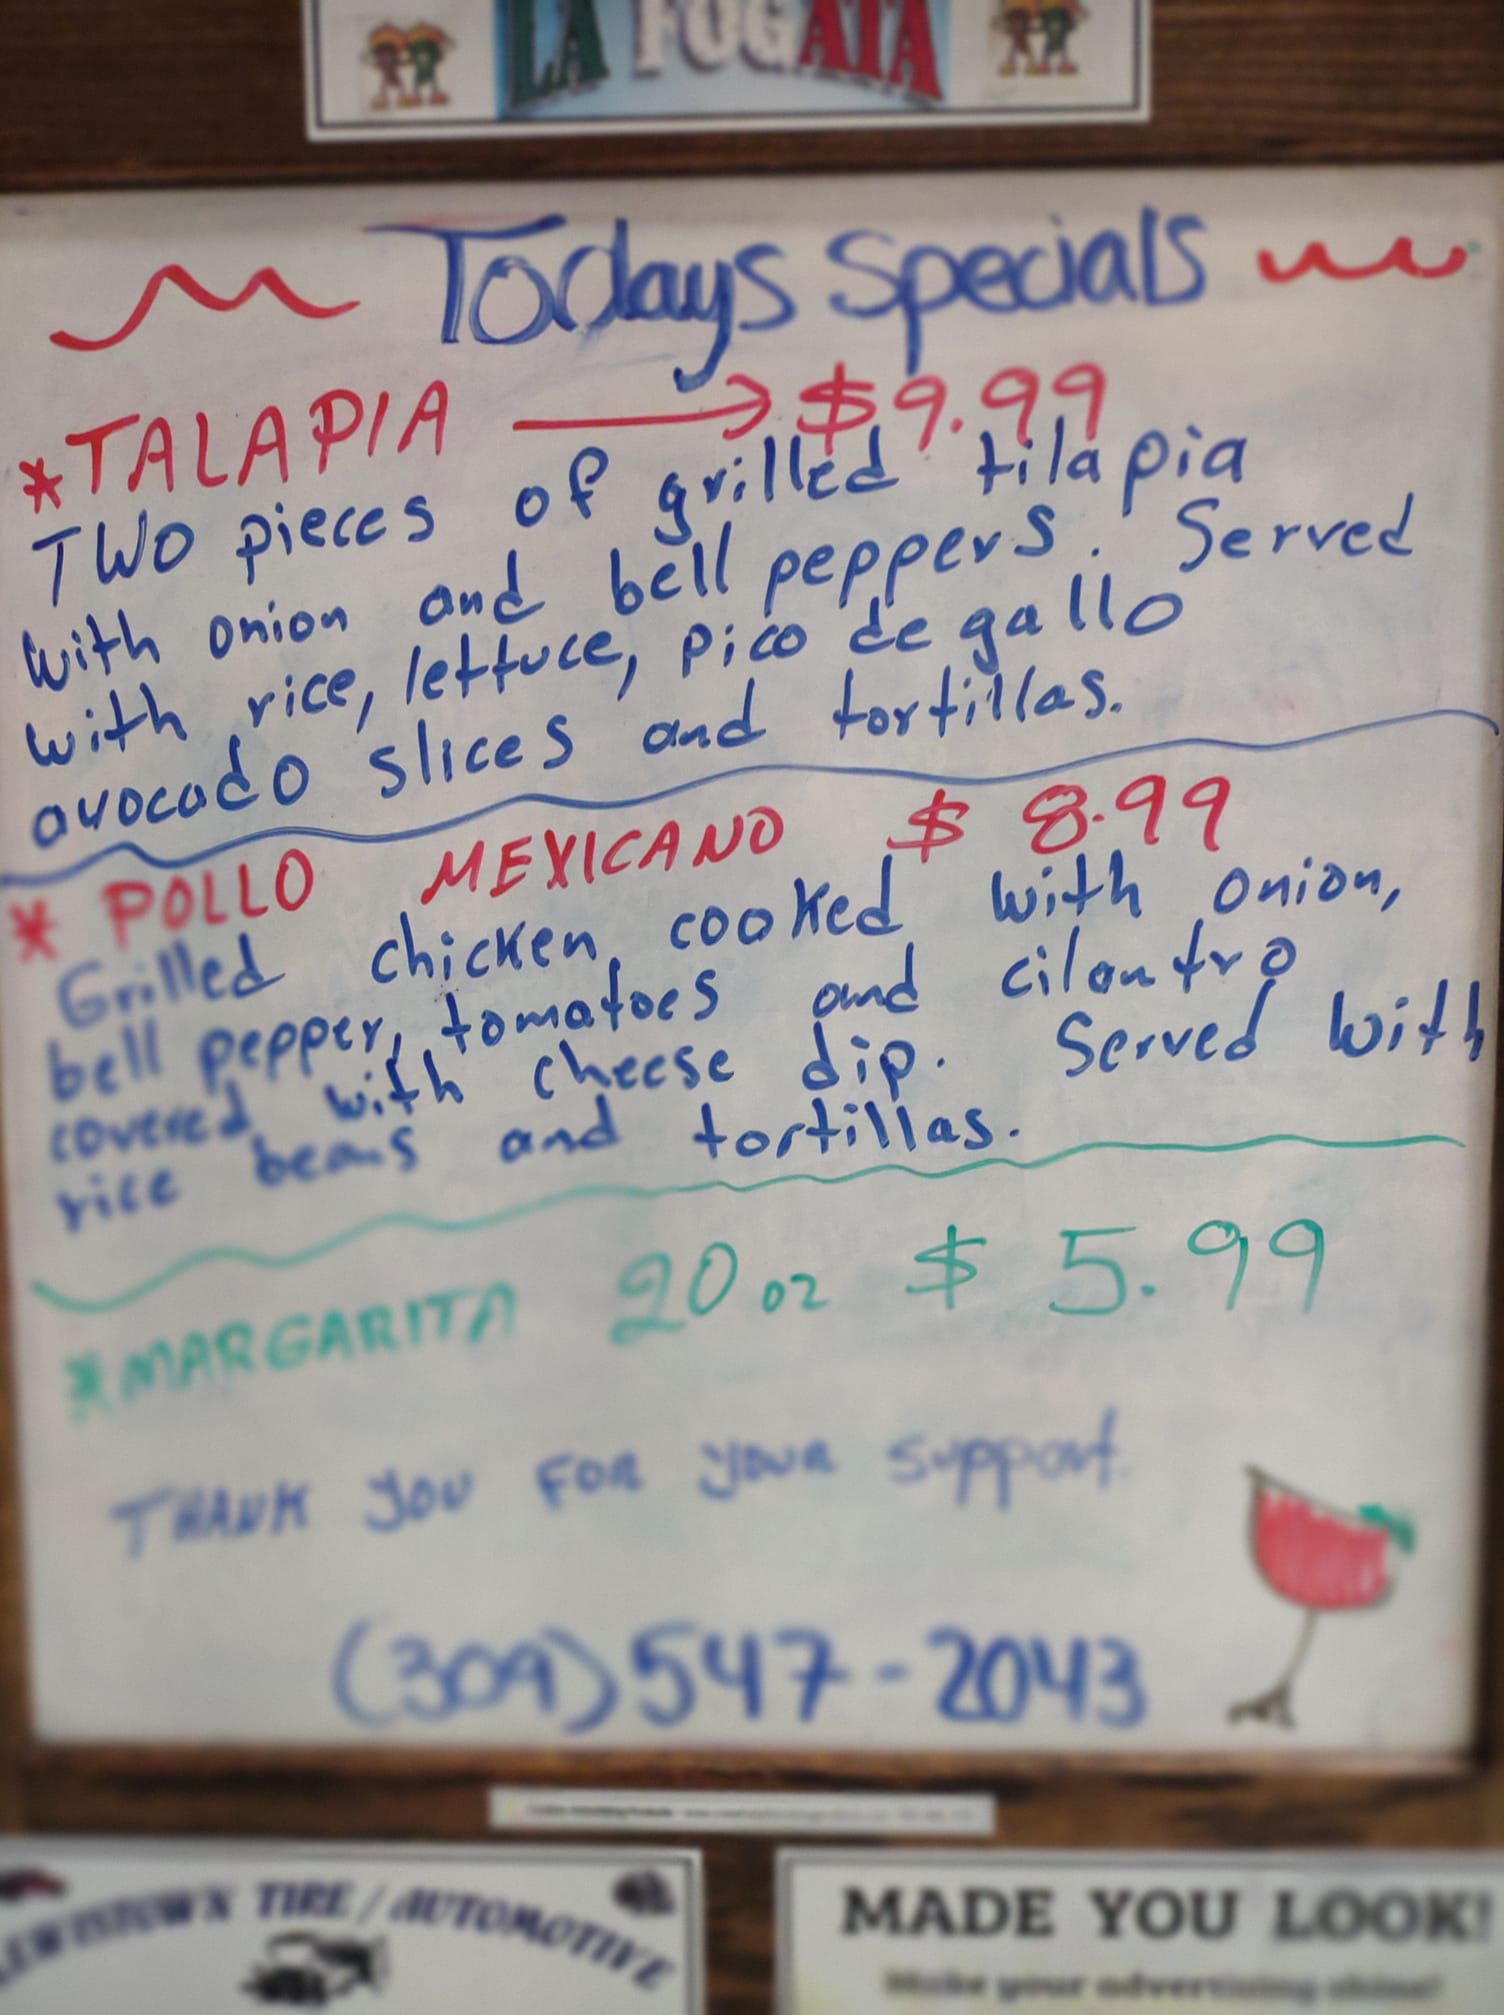 LA FOGATA
Todays Specials
*TALAPIA → $9.99
TWO pieces of grilled tilapia
with onion and bell peppers. Served
with rice, lettuce, pico de gallo
avocado slices and tortillas.
* POLLO MEXICANO $ 8.99
Grilled chicken, cooked with onion,
bell pepper, tomatoes and cilantro
covered with cheese dip. Served with
rice beans and tortillas.
*MARGARITA 20 oz $ 5.99
THANK YOU FOR YOUR support.
(309)547-2043
LEWISTOWN TIRE / AUTOMOTIVE
MADE YOU LOOK!
Make your advertising shine!